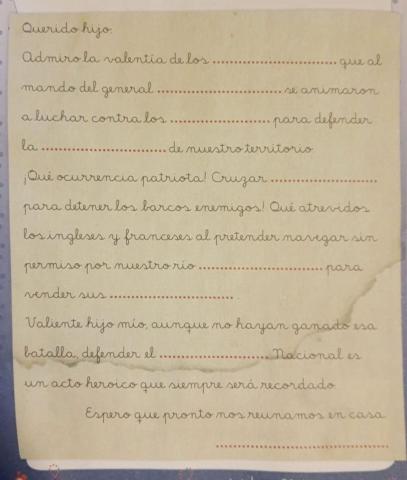 Querido hijo:
Admiro la valentía de los ........................ que al
mando del general ........................ se animaron
a luchar contra los ........................ para defender
la ........................ de nuestro territorio.
¡Qué ocurrencia patriota! Cruzar ........................
para detener los barcos enemigos! Qué atrevidos
los ingleses y franceses al pretender navegar sin
permiso por nuestro río ........................ para
vender sus ........................ .
Valiente hijo mío, aunque no hayan ganado esa
batalla, defender el ........................ Nacional es
un acto heroico que siempre será recordado.
Espero que pronto nos reunamos en casa.
........................